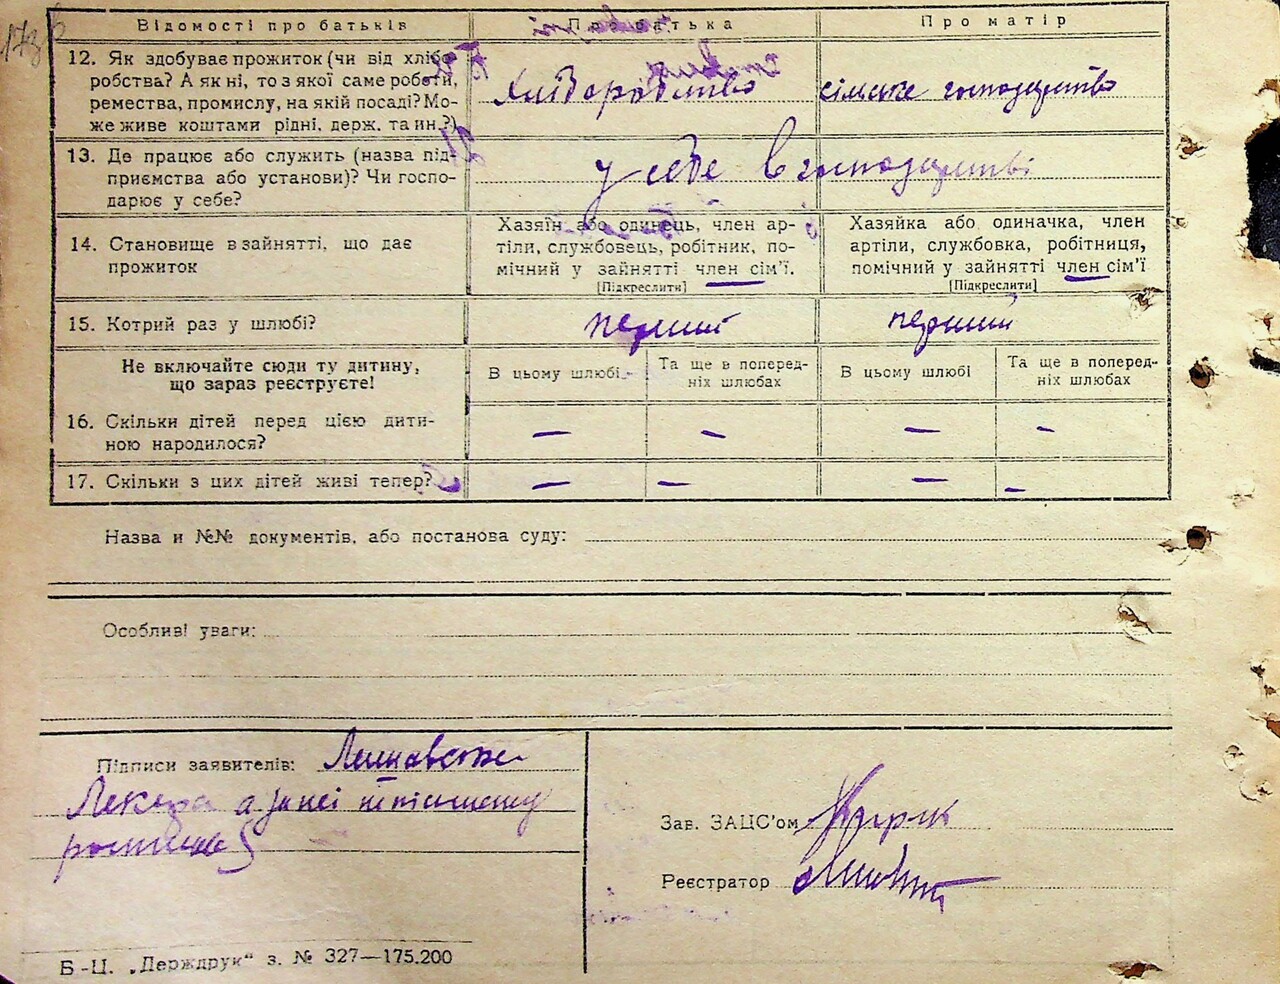 173
Відомості про батьків
Про батька
Про матір
12. Як здобуває прожиток (чи від хлібо-
робства? А як ні, то з якої саме роботи,
ремества, промислу, на якій посаді? Мо-
же живе коштами рідні, держ. та ин.?)
Хліборобство
сільське господарство
13. Де працює або служить (назва під-
приємства або установи)? Чи госпо-
дарює у себе?
у себе в господарстві
14. Становище в зайнятті, що дає
прожиток
Хазяїн або одинець, член ар-
тіли, службовець, робітник, по-
мічний у зайнятті член сім'ї.
[Підкреслити]
Хазяйка або одиначка, член
артіли, службовка, робітниця,
помічний у зайнятті член сім'ї
[Підкреслити]
15. Котрий раз у шлюбі?
перший
перший
Не включайте сюди ту дитину,
що зараз реєструєте!
В цьому шлюбі
Та ще в поперед-
ніх шлюбах
В цьому шлюбі
Та ще в поперед-
ніх шлюбах
16. Скільки дітей перед цією дити-
ною народилося?
— — — —
17. Скільки з цих дітей живі тепер?
— — — —
Назва и №№ документів, або постанова суду:
Особливі уваги:
Підписи заявителів:
а за неї неписьменну
Зав. ЗАЦС'ом
Реєстратор
Б-Ц. „Держдрук“ з. № 327—175.200